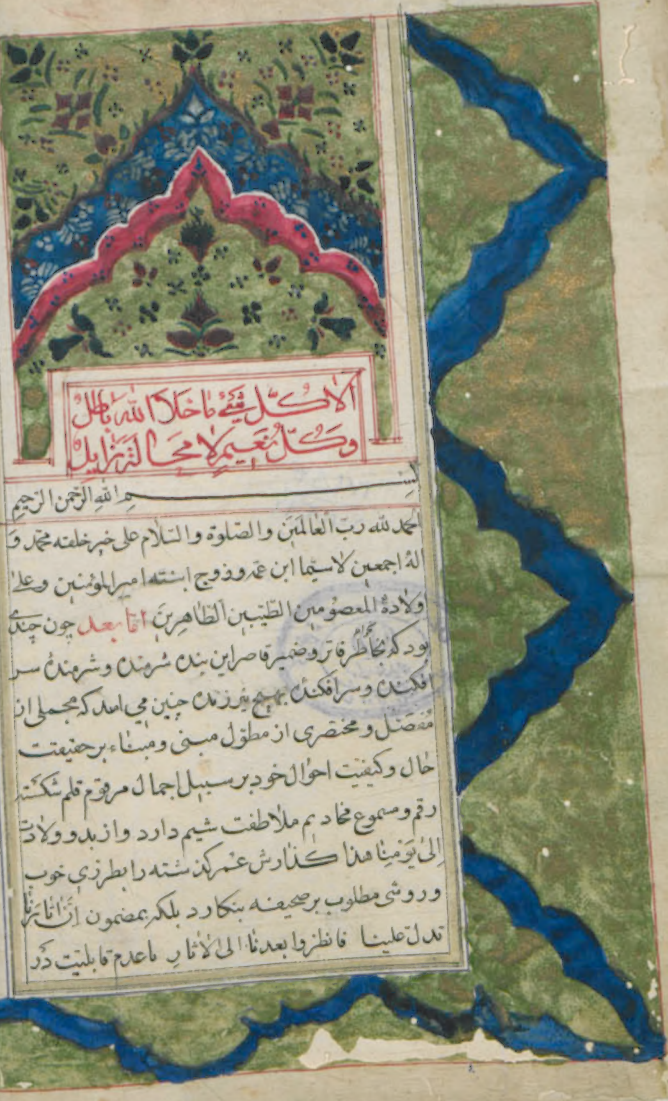 الا كلّ شيئ ما خلا الله باطل
وكلّ نعيم لا محالة زايل
بسم الله الرحمن الرحيم
الحمد لله ربّ العالمين والصلوة والسلام على خير خلقه محمد و
اله اجمعين لاسيما ابن عمه وزوج ابنته اميرالمؤمنين وعلى
اولاده المعصومين الطيبين الطاهرين اما بعد چون چندى
بود كه بخاطر فاتر وضمير قاصر اين بنده شرمنده وشرمنده سر
افكنده وسرافكنده بهيچ نيرزنده چنين مى امد كه مجملى از
مفصّل ومختصرى از مطول مبنى ومبناء بر حقيقت
حال وكيفيت احوال خود بر سبيل اجمال مرقوم قلم شكسته
رقم ومسموع مخاديم ملاطفت شيم دارد واز بدو ولادت
الى يومنا هذا گذارش عمر گذشته را بطرزى خوب
وروشى مطلوب بر صحيفه بنكارد بلكه بمضمون انّ اثارنا
تدل علينا فانظروا بعدنا الى الاثار باعدم قابليت در